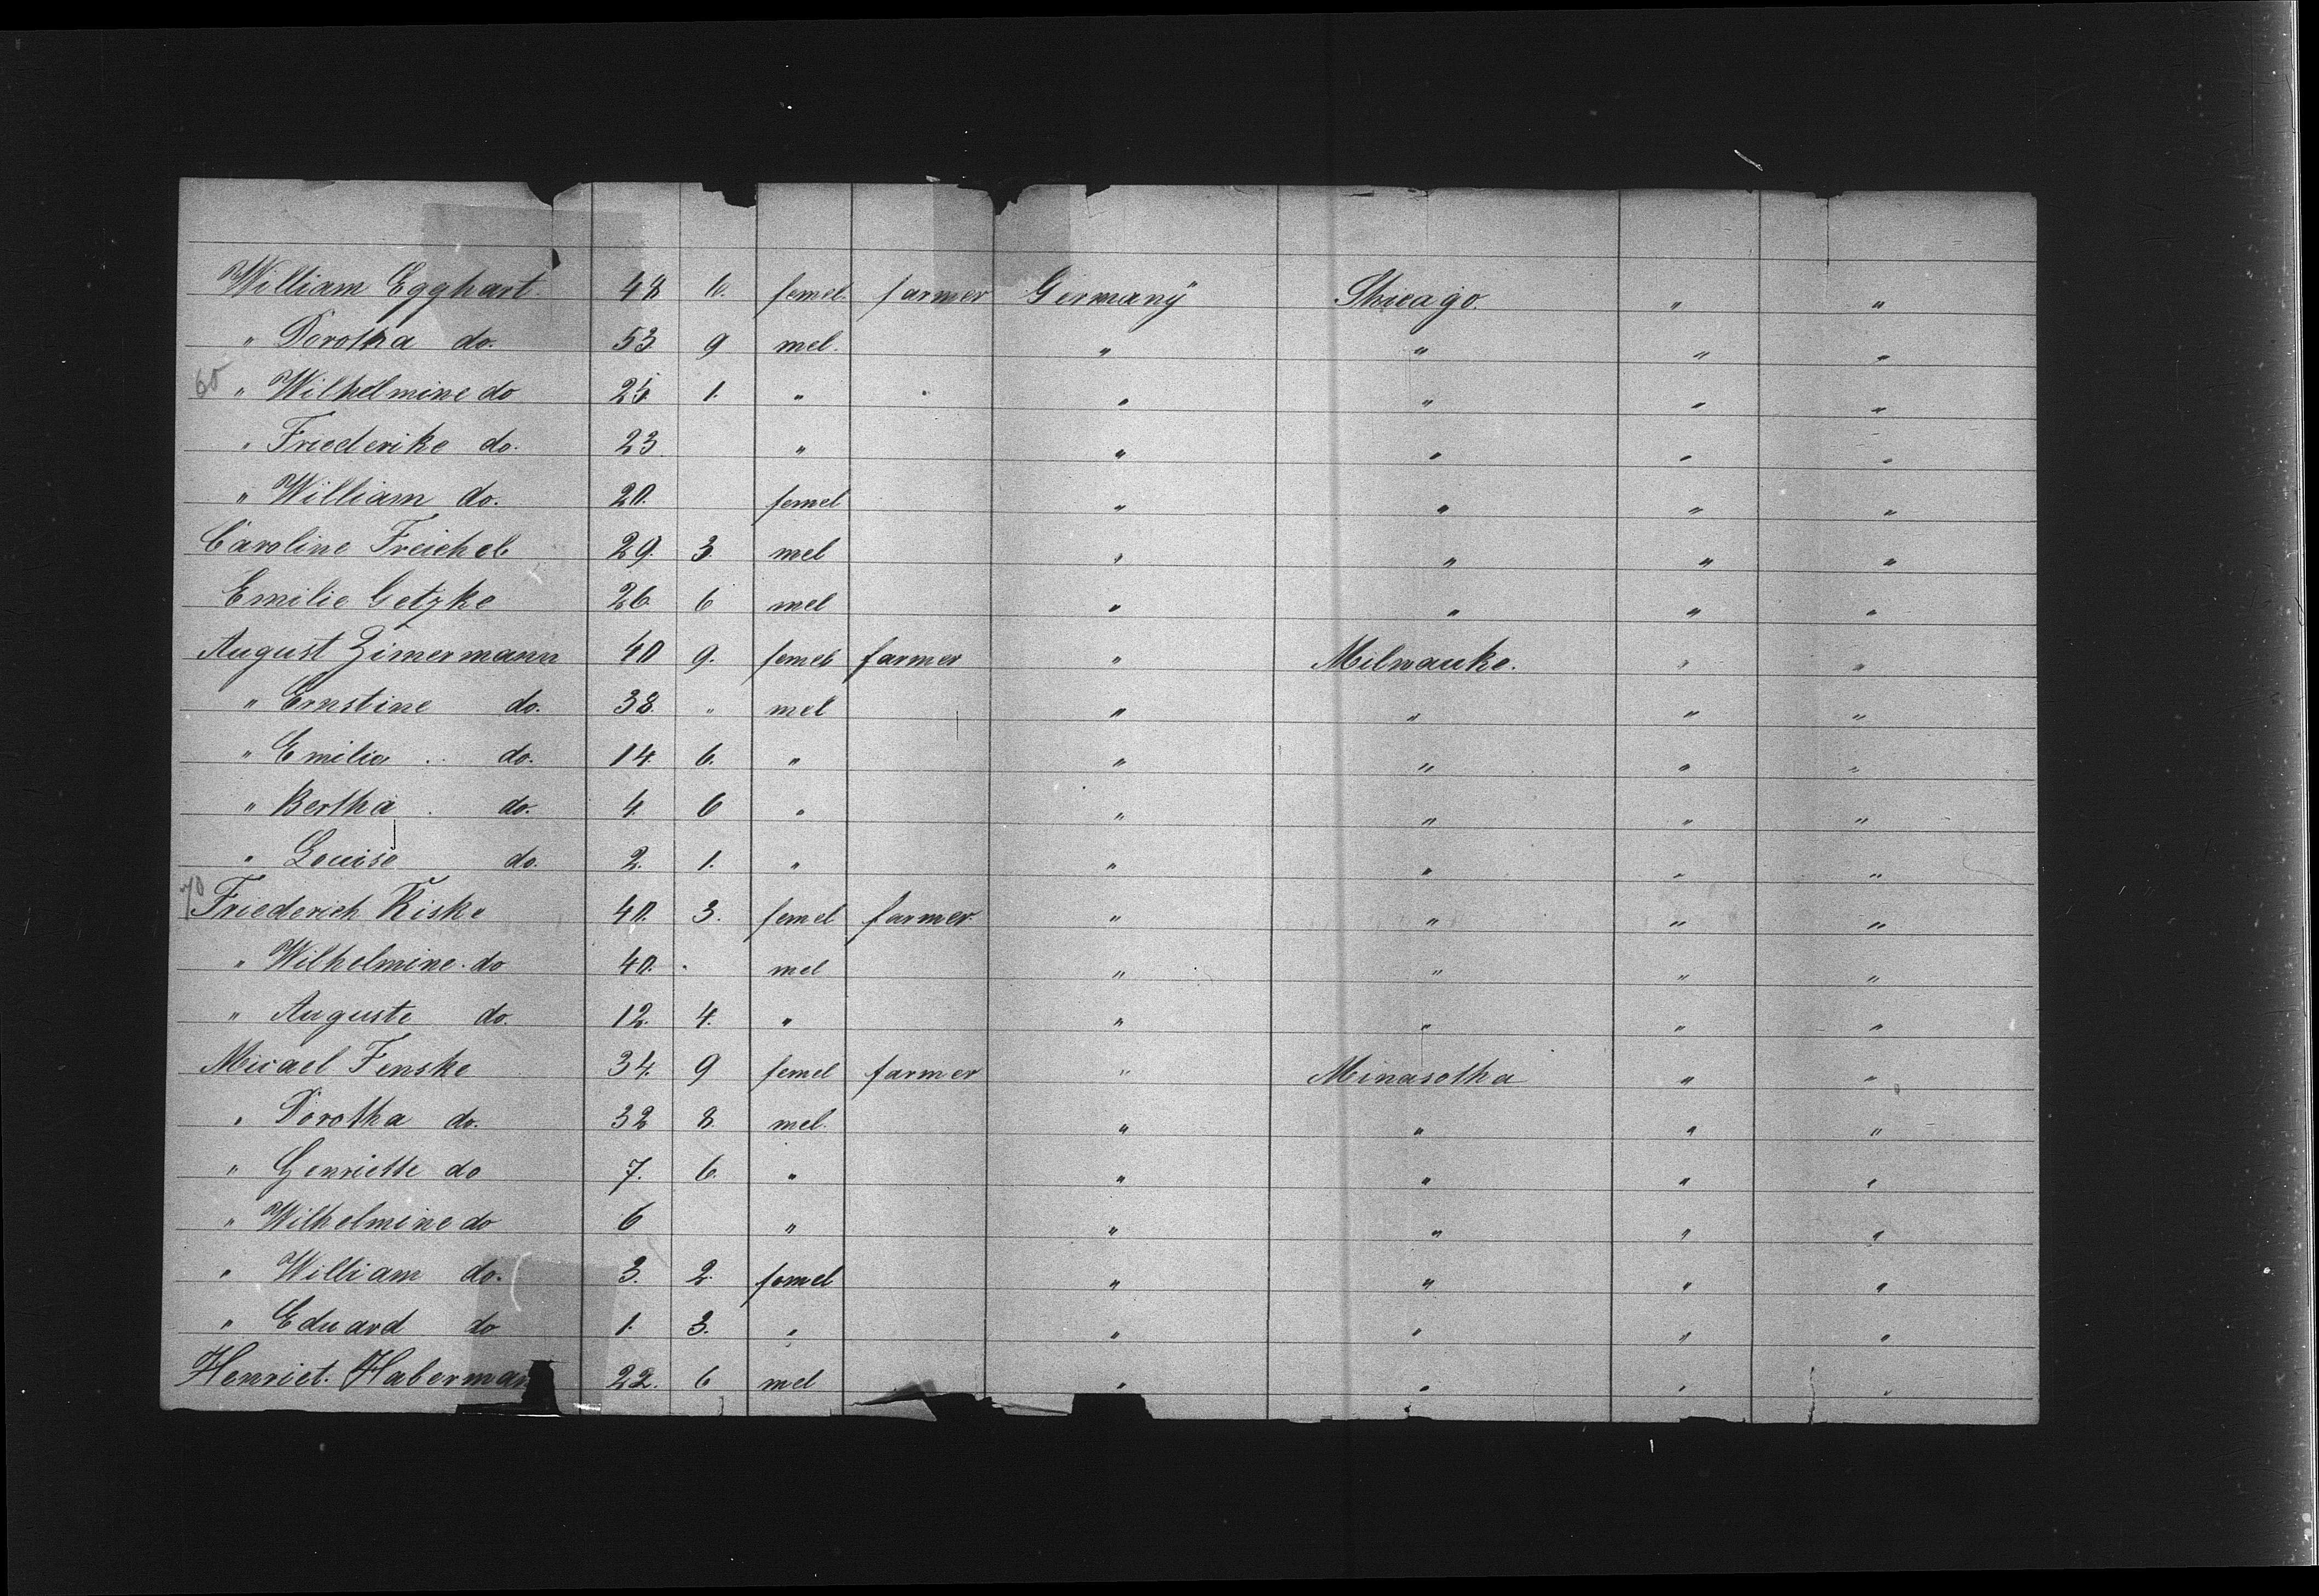 William Egghart. 48 6. femel. farmer Germany Shicago. " "
" Dorotha do. 53 9 mel. " " " "
65 " Wilhelmine do 25 1. " " " " "
" Friederike do. 23 " " " " "
" William do. 20. femel " " " "
Caroline Freichel 29. 3. mel " " " "
Emilie Getzke 26 6 mel " " " "
August Zimermann 40 9. femel farmer " Milwauke. " "
" Ernstine do. 38. " mel " " " "
" Emilia .. do. 14. 6. " " " " "
" Bertha . do. 4. 6 " " " " "
" Louise do. 2. 1. " " " " "
70 Friederich Kiske 40. 3. femel farmer " " " "
" Wilhelmine. do 40. . mel " " " "
" Auguste do. 12. 4. " " " " "
Micael Fenske 34. 9 femel farmer " Minasotha " "
" Dorotha do. 32 8. mel. " " " "
" Henriette do 7. 6. " " " " "
" Wilhelmine do 6 " " " " "
" William do. 3. 2. femel " " " "
" Eduard do 1. 3. " " " " "
Henriet. Haberman 22. 6 mel " " " "